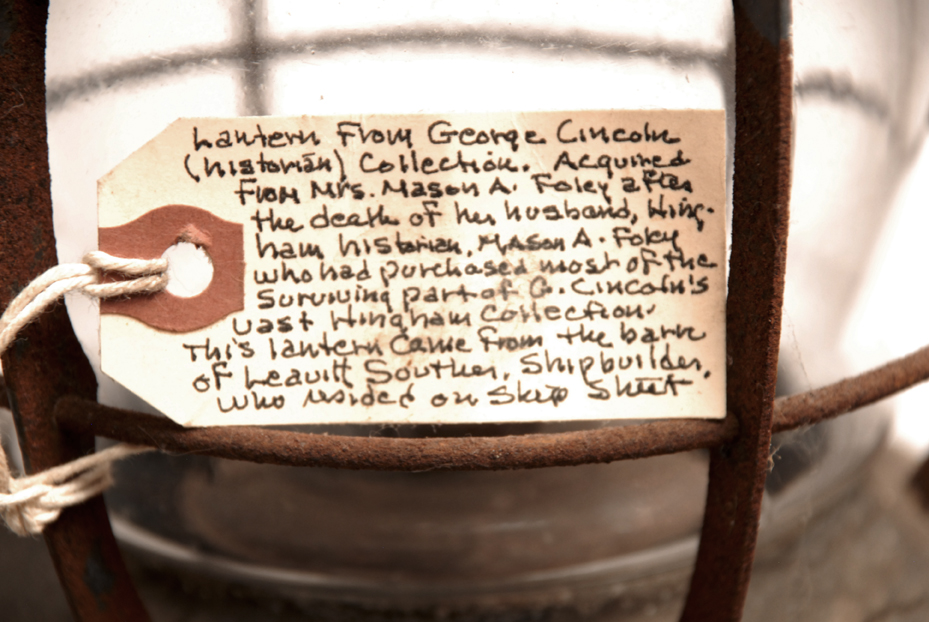 Lantern From George Lincoln
(historian) Collection. Acquired
from Mrs. Mason A. Foley after
the death of her husband, Hing-
ham historian, Mason A. Foley
who had purchased most of the
surviving part of G. Lincoln's
vast Hingham collection.
This lantern came from the barn
of Leavitt Souther, Shipbuilder,
who resided on Ship Street